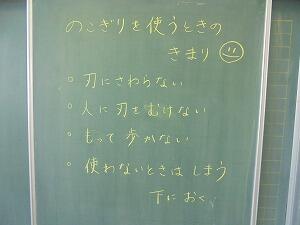 のこぎりを使うときの
きまり
○刃にさわらない
○人に刃をむけない
○もって歩かない
○使わないときはしまう
下におく